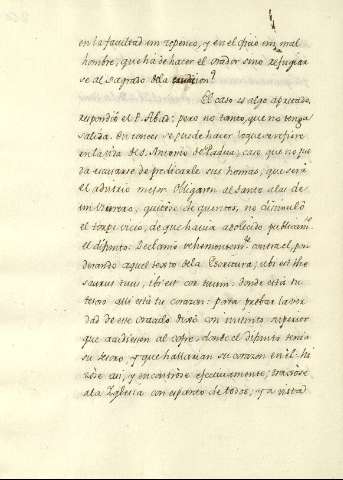 en la facultad empobreció, y en el fixó un mal
hombre, que ha de hacer el orador sino refugiar
se al sagrado dela
El caso es algo apretado,
respondió el P. Abad: pero no tanto, que no tenga
salida. Entonces se puede hacer lo que se refiere
en la vida de S. Antonio de Padua, caso que no pu
da escusarse de predicarle sus honras, que será
el advitrio mejor. Obligaron al Santo a las de
un Usurero, quitóse de quentos, no disimuló
el torpe vicio, de que havia adolecido publicam.te
el difunto: Declamó vehementem.te contra el, pon
derando aquel texto dela Escritura; ubi est the
saurus tuus, ibi est cor tuum: donde está tu
tesoro allí está tu corazon: para probar la ver
dad de este oraculo dixo con instinto superior
que acudiesen al cofre, donde el difunto tenia
su tesoro, y que hallarian su corazon en èl: hi
zòse asi, y encontròse efectivamente; traxòse
ala Iglesia con espanto de todos, y a vista